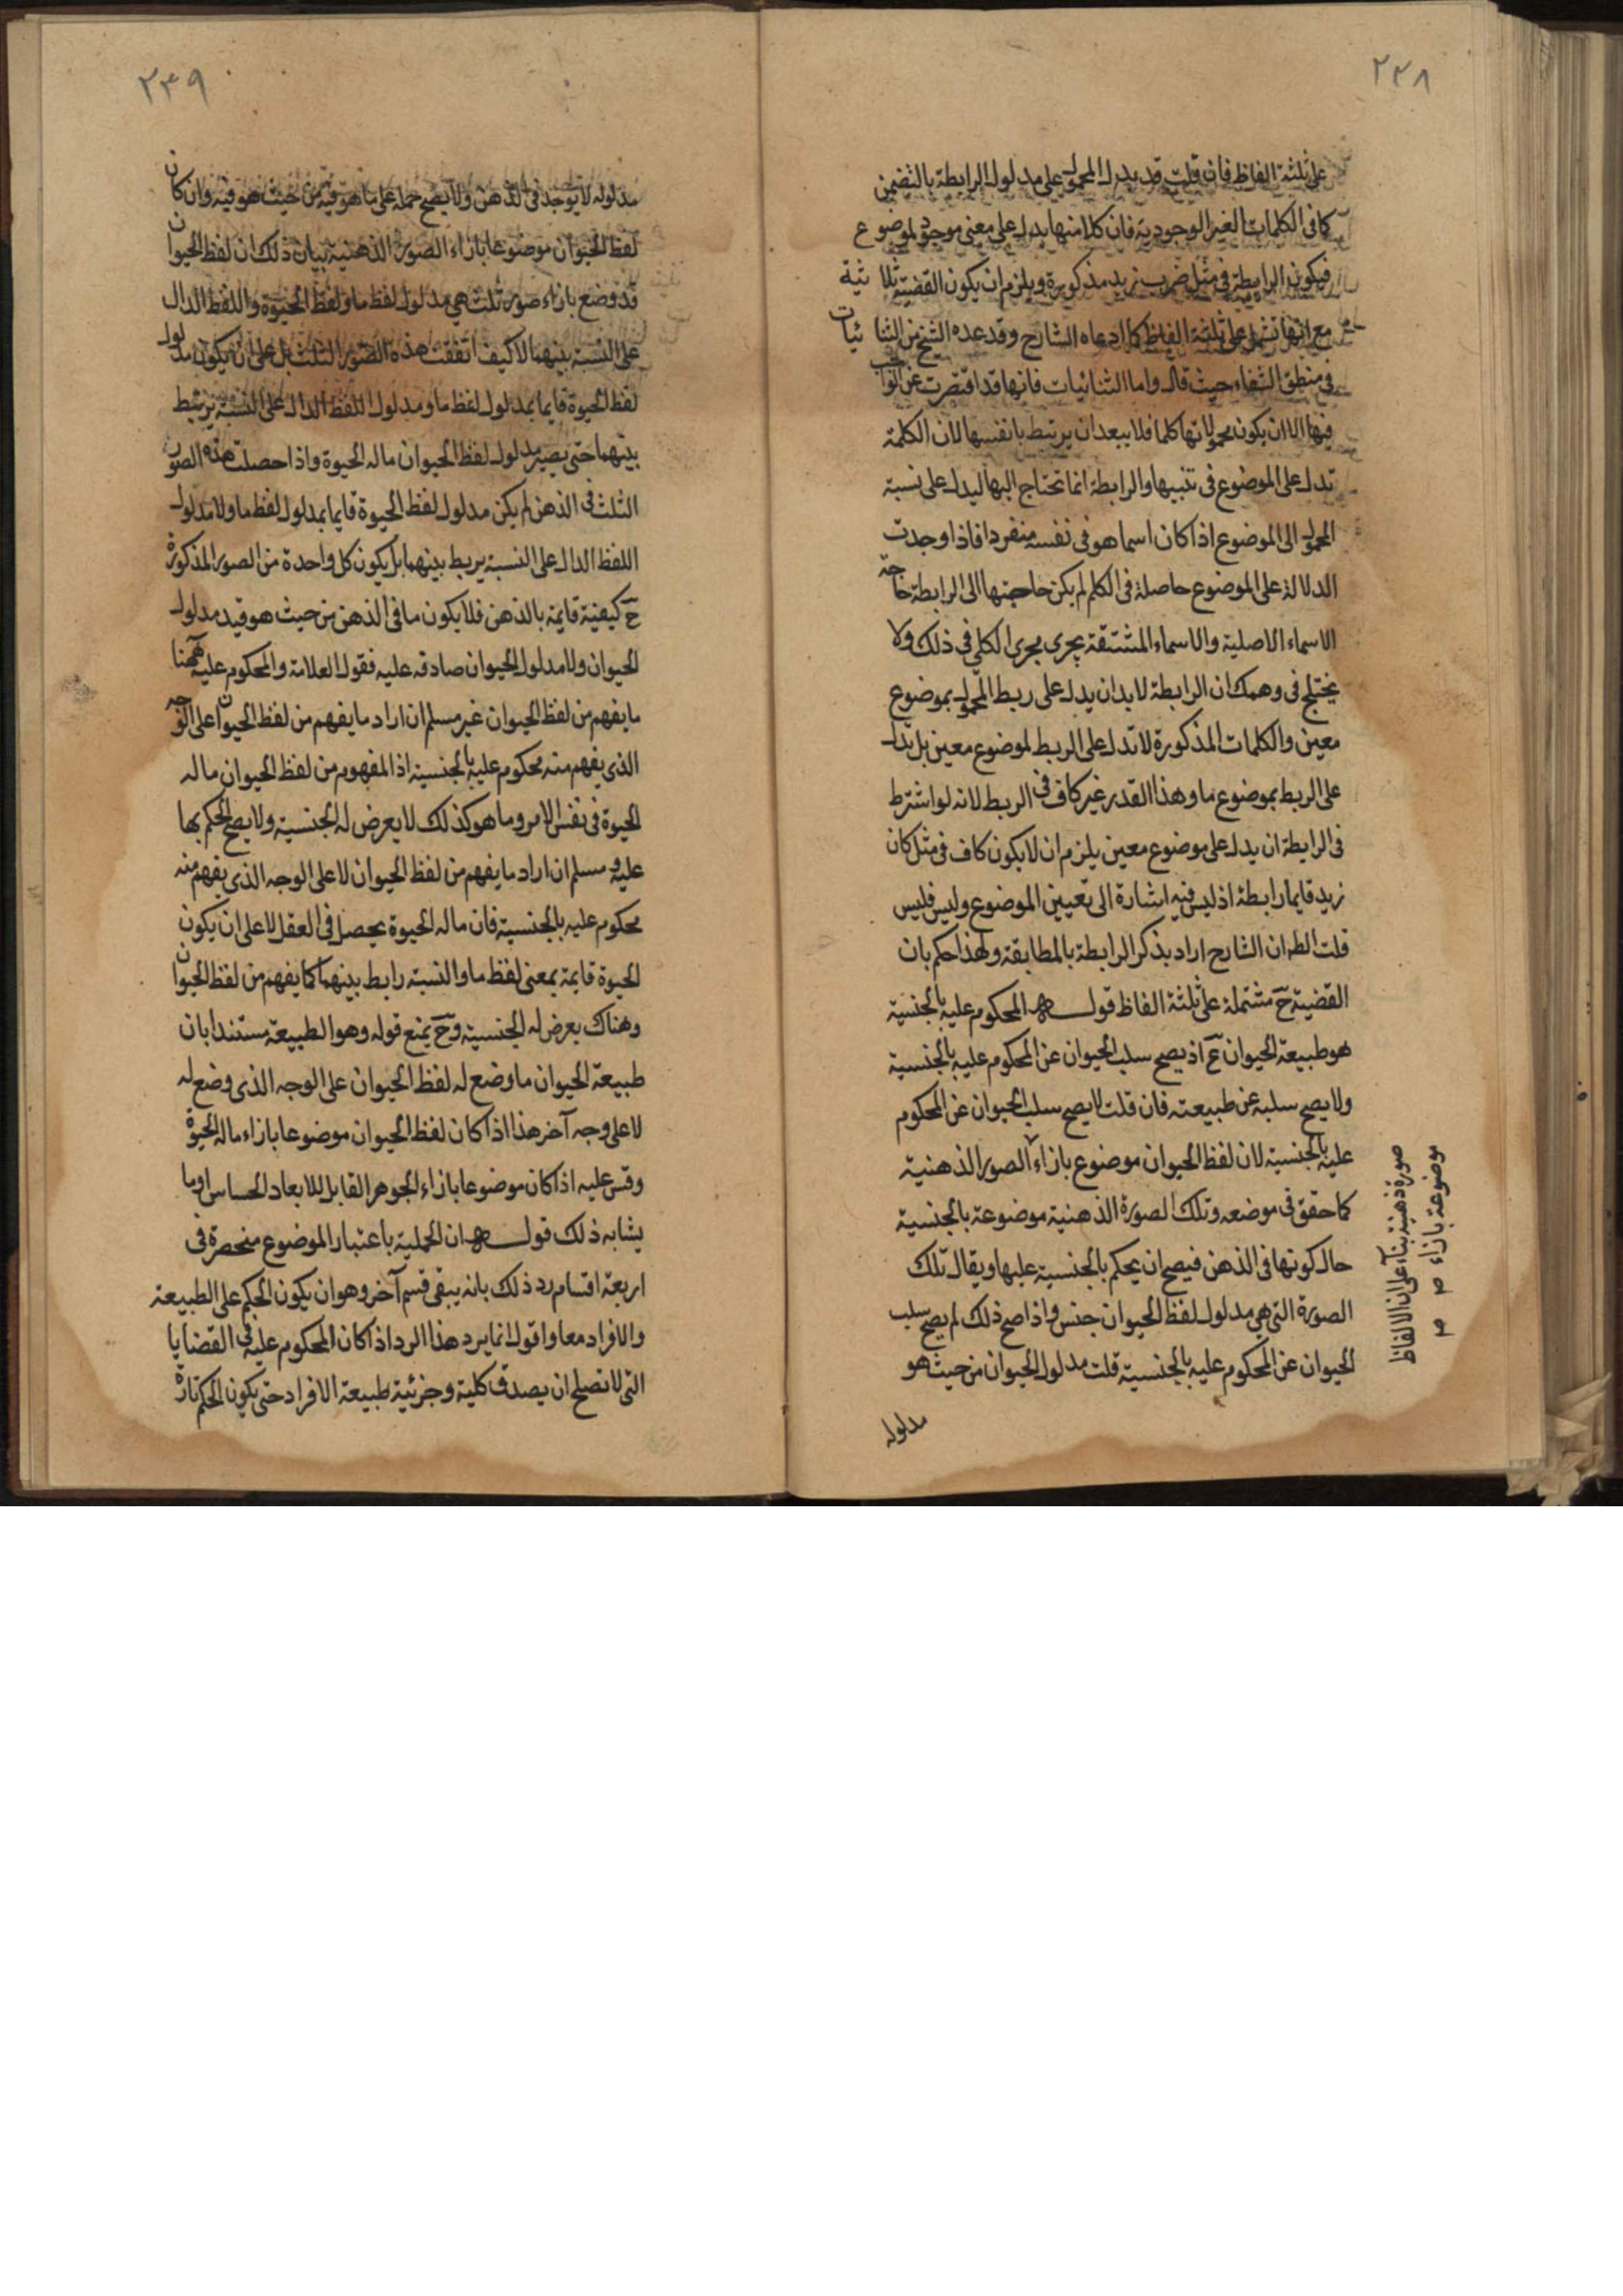 ٢٣٨
على ثلثة الفاظ فان قلت قد يدل المحمول على مدلول الرابطة بالتضمن
كما فى الكلمات الغير الوجودية فان كلا منها يدل على معنى موجود لموضوع
فيكون الرابطة فى مثل ضرب زيد مذكورة ويلزم ان يكون القضية ثلاثية
مع انها تشتمل على ثلثة الفاظ كما ادعاه الشارح وقد عده الشيخ من الثنائيات
فى منطق الشفاء حيث قال واما الثنائيات فانها قد اقتصرت عن الواجب
فيها الا ان يكون محمولاتها كلما فلا يبعد ان يرتبط بانفسها لان الكلمة
تدل على الموضوع فى تنبيها والرابطة انما تحتاج اليها ليدل على نسبة
المحمول الى الموضوع اذا كان اسما هو فى نفسه منفردا فاذا وجدت
الدلالة على الموضوع حاصلة فى الكلم لم يكن حاجتها الى الرابطة حاجة
الاسماء الاصلية والاسماء المشتقة يجرى مجرى الكلم فى ذلك ولا
يختلج فى وهمك ان الرابطة لابد ان يدل على ربط المحمول بموضوع
معين والكلمات المذكورة لا تدل على الربط لموضوع معين بل تدل
على الربط بموضوع ما وهذا القدر غير كاف فى الربط لانه لو اشترط
فى الرابطة ان يدل على موضوع معين يلزم ان لا يكون كاف فى مثل كان
زيد قايما رابطة اذ ليس فيه اشارة الى تعيين الموضوع وليس فليس
قلت الظ ان الشارح اراد بذكر الرابطة بالمطابقة ولهذا حكم بان
القضية ح مشتملة على ثلثة الفاظ قولــه المحكوم عليه بالجنسية
هو طبيعة الحيوان ع اذ يصح سلب الحيوان عن المحكوم عليه بالجنسية
ولا يصح سلبه عن طبيعته فان قلت لا يصح سلب الحيوان عن المحكوم
عليه بالجنسية لان لفظ الحيوان موضوع بازاء الصور الذهنية
كما حقق فى موضعه وتلك الصورة الذهنية موضوعة بالجنسية
حال كونها فى الذهن فيصح ان يحكم بالجنسية عليها ويقال تلك
الصورة التى هى مدلول لفظ الحيوان جنس واذا صح ذلك لم يصح سلب
الحيوان عن المحكوم عليه بالجنسية قلت مدلول الحيوان من حيث هو
مدلوله
صورة ذهنية بناء على ان الالفاظ
موضوعة بازاء
٢٣٩
مدلوله لا يوجد فى الذهن ولا يصح حمله على ما هو فيه من حيث هو فيه وان كان
لفظ الحيوان موضوعا بازاء الصور الذهنية بيان ذلك ان لفظ الحيوان
قد وضع بازاء صورة ثلث هى مدلول لفظ ما ولفظ الحيوة واللفظ الدال
على النسبة بينهما لا كيف اتفقت هذه الصور الثلث بل على ان يكون مدلول
لفظ الحيوة قايما بمدلول لفظ ما ومدلول اللفظ الدال على النسبة يرتبط
بينهما حتى يصير مدلول لفظ الحيوان ماله الحيوة واذا حصلت هذه الصور
الثلث فى الذهن لم يكن مدلول لفظ الحيوة قايما بمدلول لفظ ما ولا مدلول
اللفظ الدال على النسبة يربط بينهما بل يكون كل واحدة من الصور المذكورة
ح كيفية قايمة بالذهن فلا يكون ما فى الذهن من حيث هو قيد مدلول
الحيوان ولا مدلول الحيوان صادقه عليه فقول العلامة والمحكوم عليه ههنا
ما يفهم من لفظ الحيوان غير مسلم ان اراد ما يفهم من لفظ الحيوان على الوجه
الذى يفهم منه محكوم عليه بالجنسية اذ المفهوم من لفظ الحيوان ماله
الحيوة فى نفس الامر وما هو كذلك لا يعرض له الجنسية ولا يصح الحكم بها
عليه و مسلم ان اراد ما يفهم من لفظ الحيوان لا على الوجه الذى يفهم منه
محكوم عليه بالجنسية فان ماله الحيوة يحصل فى العقل لا على ان يكون
الحيوة قايمة بمعنى لفظ ما والنسبة رابط بينهما كما يفهم من لفظ الحيوان
وهناك يعرض له الجنسية وح يمنع قوله وهو الطبيعة مستندا بان
طبيعة الحيوان ما وضع له لفظ الحيوان على الوجه الذى وضع له
لا على وجه آخر هذا اذا كان لفظ الحيوان موضوعا بازاء ماله الحيوة
وقس عليه اذا كان موضوعا بازاء الجوهر القابل للابعاد الحساس او ما
يشابه ذلك قولــه ان الحملية باعتبار الموضوع منحصرة فى
اربعة اقسام رد ذلك بانه يبقى قسم آخر وهو ان يكون الحكم على الطبيعة
والافراد معا واقول انما يرد هذا الرد اذا كان المحكوم عليه فى القضايا
التى لا تصلح ان يصدق كلية وجزئية طبيعة الافراد حتى يكون الحكم تارة